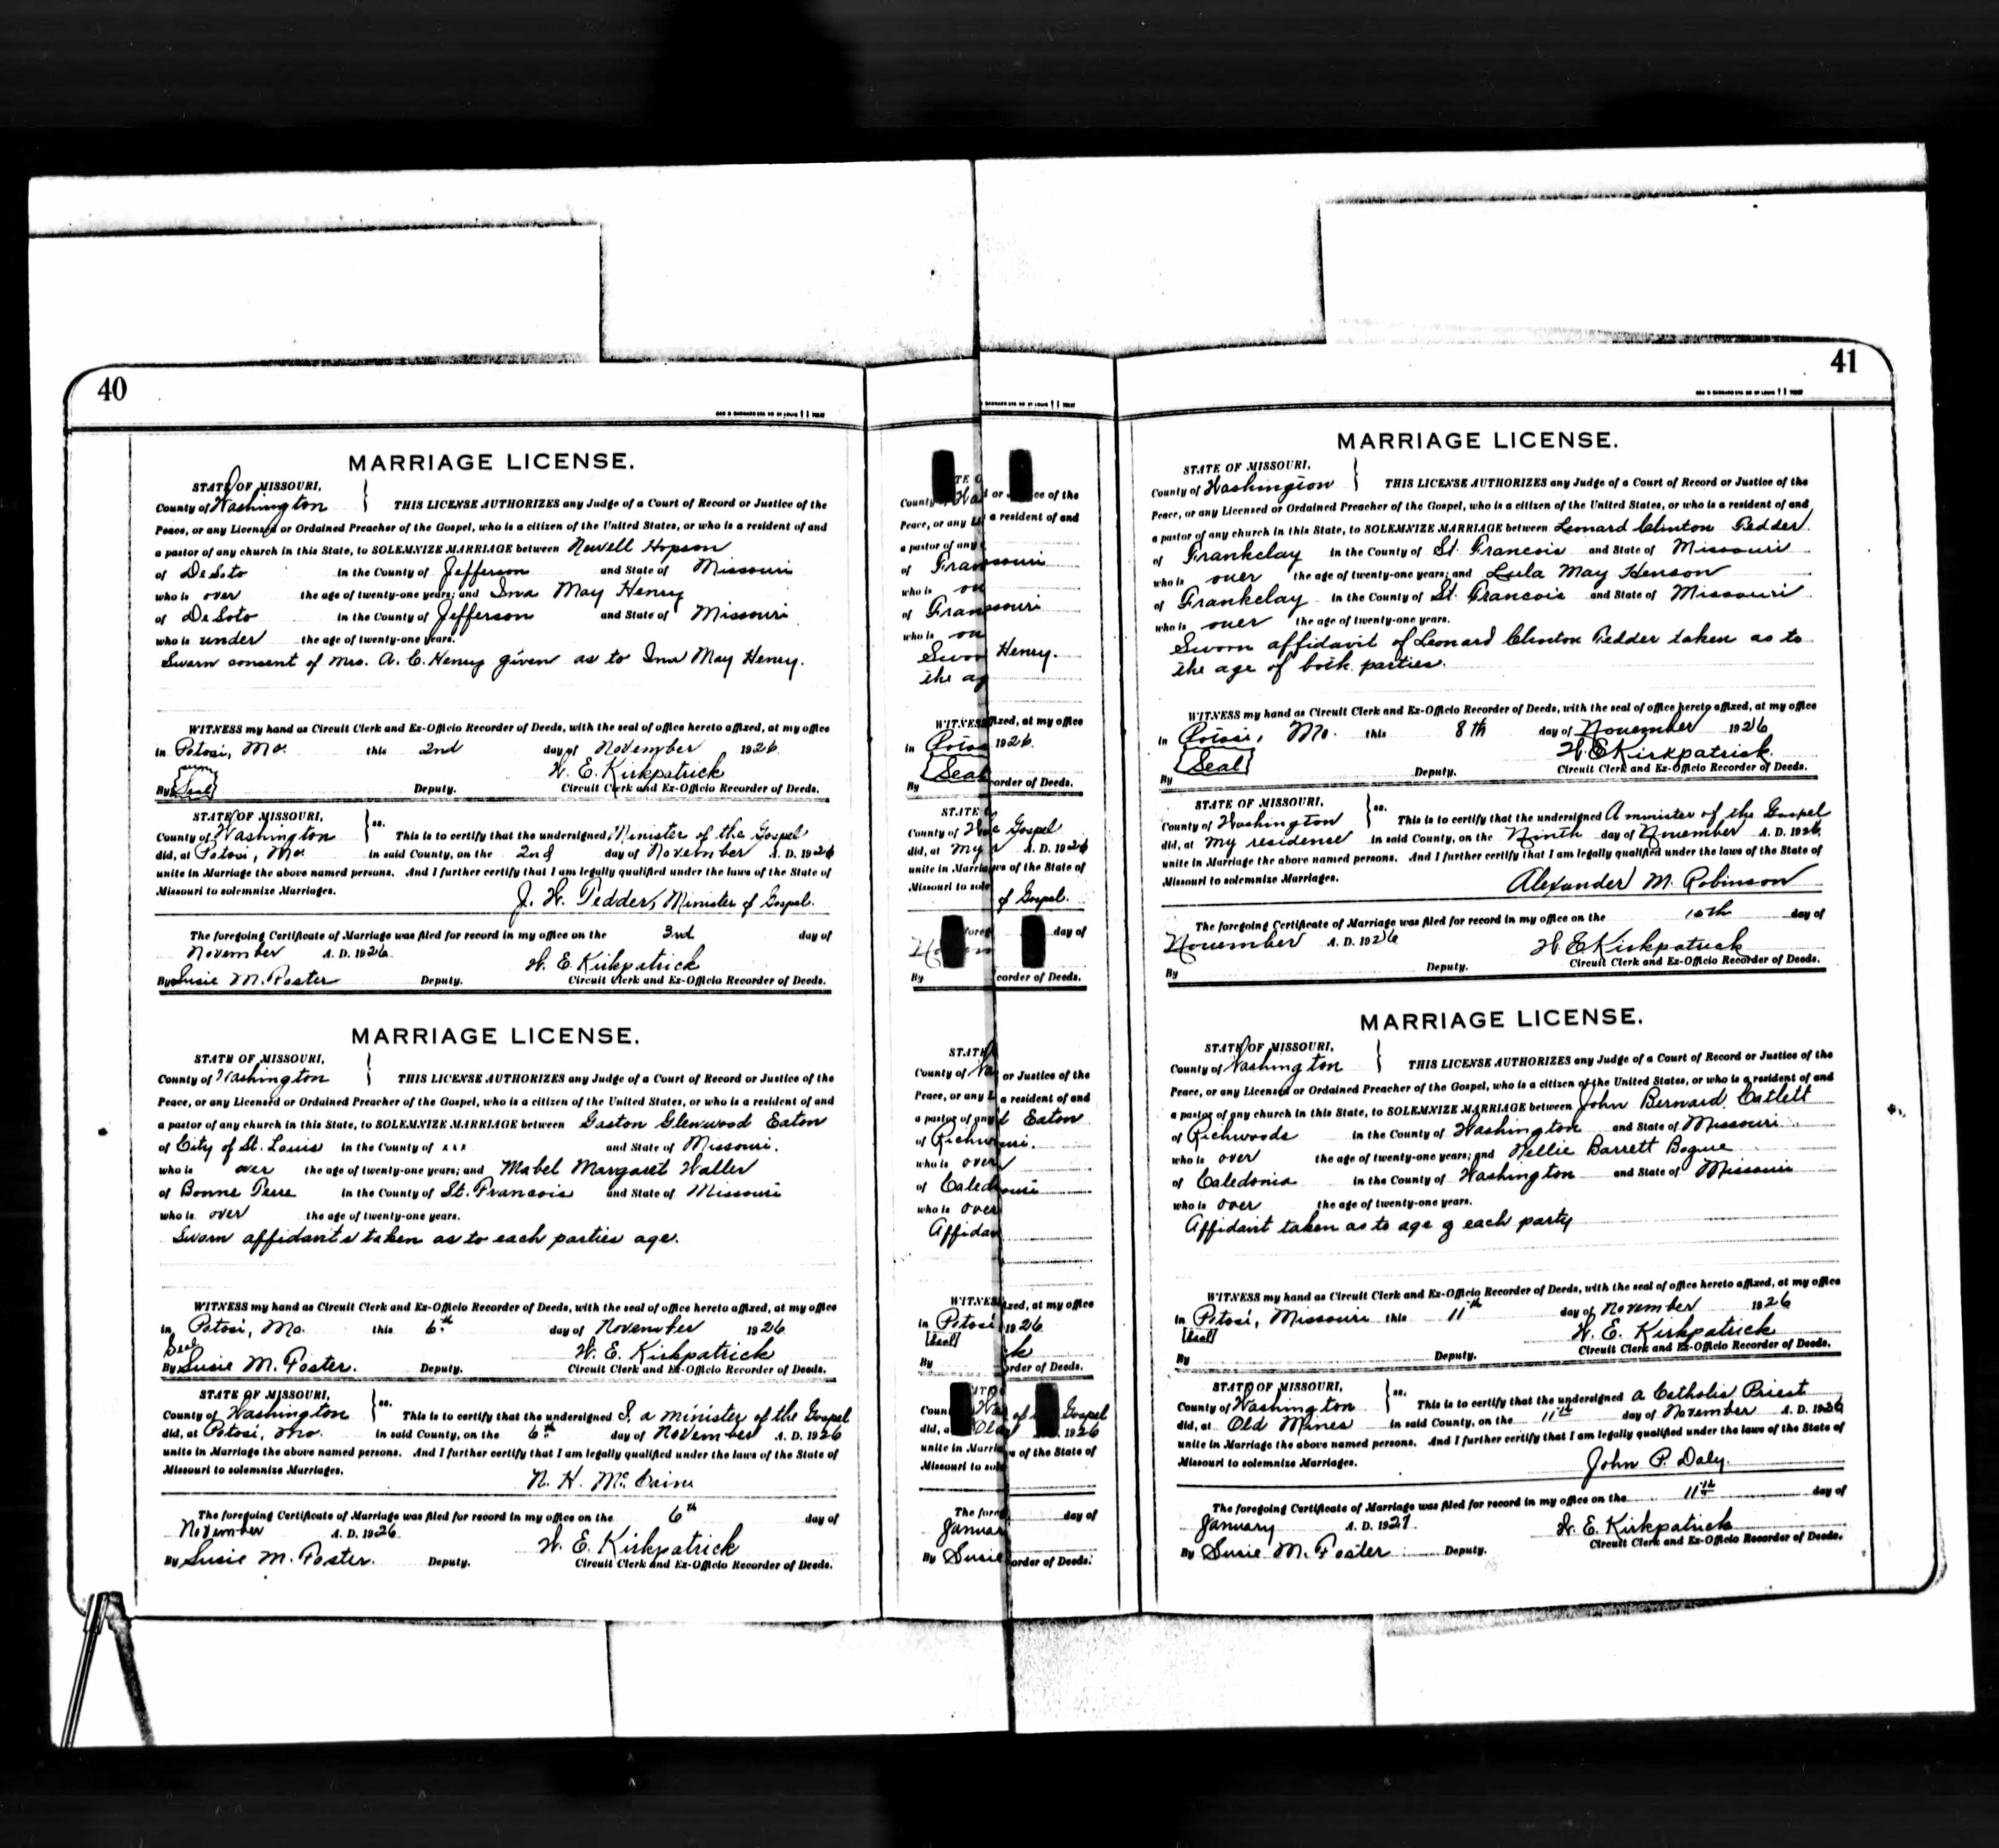 40
MARRIAGE LICENSE.
STATE OF MISSOURI,
County of Washington } THIS LICENSE AUTHORIZES any Judge of a Court of Record or Justice of the
Peace, or any Licensed or Ordained Preacher of the Gospel, who is a citizen of the United States, or who is a resident of and
a pastor of any church in this State, to SOLEMNIZE MARRIAGE between Newell Hopson
of DeSoto in the County of Jefferson and State of Missouri
who is over the age of twenty-one years; and Ina May Henry
of DeSoto in the County of Jefferson and State of Missouri
who is under the age of twenty-one years.
Sworn consent of Mrs. A. C. Henry given as to Ina May Henry.
WITNESS my hand as Circuit Clerk and Ex-Officio Recorder of Deeds, with the seal of office hereto affixed, at my office
in Potosi, Mo. this 2nd day of November 1926.
W. E. Kirkpatrick
By Seal Deputy. Circuit Clerk and Ex-Officio Recorder of Deeds.
STATE OF MISSOURI,
County of Washington } ss. This is to certify that the undersigned Minister of the Gospel
did, at Potosi, Mo. in said County, on the 2nd day of November A. D. 1926
unite in Marriage the above named persons. And I further certify that I am legally qualified under the laws of the State of
Missouri to solemnize Marriages.
J. H. Tedder, Minister of Gospel.
The foregoing Certificate of Marriage was filed for record in my office on the 3rd day of
November A. D. 1926.
W. E. Kirkpatrick
By Susie M. Foster Deputy. Circuit Clerk and Ex-Officio Recorder of Deeds.
MARRIAGE LICENSE.
STATE OF MISSOURI,
County of Washington } THIS LICENSE AUTHORIZES any Judge of a Court of Record or Justice of the
Peace, or any Licensed or Ordained Preacher of the Gospel, who is a citizen of the United States, or who is a resident of and
a pastor of any church in this State, to SOLEMNIZE MARRIAGE between Gaston Glenwood Eaton
of City of St. Louis in the County of x x x and State of Missouri.
who is over the age of twenty-one years; and Mabel Margaret Haller
of Bonne Terre in the County of St. Francois and State of Missouri
who is over the age of twenty-one years.
Sworn affidavits taken as to each parties age.
WITNESS my hand as Circuit Clerk and Ex-Officio Recorder of Deeds, with the seal of office hereto affixed, at my office
in Potosi, Mo. this 6th day of November 1926
Seal W. E. Kirkpatrick
By Susie M. Foster. Deputy. Circuit Clerk and Ex-Officio Recorder of Deeds.
STATE OF MISSOURI,
County of Washington } ss. This is to certify that the undersigned I, a minister of the Gospel
did, at Potosi, Mo. in said County, on the 6th day of November A. D. 1926
unite in Marriage the above named persons. And I further certify that I am legally qualified under the laws of the State of
Missouri to solemnize Marriages.
N. H. Mc
The foregoing Certificate of Marriage was filed for record in my office on the 6th day of
November A. D. 1926
W. E. Kirkpatrick
By Susie M. Foster. Deputy. Circuit Clerk and Ex-Officio Recorder of Deeds.
41
MARRIAGE LICENSE.
STATE OF MISSOURI,
County of Washington } THIS LICENSE AUTHORIZES any Judge of a Court of Record or Justice of the
Peace, or any Licensed or Ordained Preacher of the Gospel, who is a citizen of the United States, or who is a resident of and
a pastor of any church in this State, to SOLEMNIZE MARRIAGE between Leonard Clinton Tedder
of Frankclay in the County of St. Francois and State of Missouri
who is over the age of twenty-one years; and Lula May Henson
of Frankclay in the County of St. Francois and State of Missouri
who is over the age of twenty-one years.
Sworn affidavit of Leonard Clinton Tedder taken as to
the age of both parties.
WITNESS my hand as Circuit Clerk and Ex-Officio Recorder of Deeds, with the seal of office hereto affixed, at my office
in Potosi, Mo. this 8th day of November 1926
Seal W. E. Kirkpatrick
By Deputy. Circuit Clerk and Ex-Officio Recorder of Deeds.
STATE OF MISSOURI,
County of Washington } ss. This is to certify that the undersigned A minister of the Gospel
did, at my residence in said County, on the Ninth day of November A. D. 1926
unite in Marriage the above named persons. And I further certify that I am legally qualified under the laws of the State of
Missouri to solemnize Marriages.
Alexander M. Robinson
The foregoing Certificate of Marriage was filed for record in my office on the 10th day of
November A. D. 1926
W. E. Kirkpatrick
By Deputy. Circuit Clerk and Ex-Officio Recorder of Deeds.
MARRIAGE LICENSE.
STATE OF MISSOURI,
County of Washington } THIS LICENSE AUTHORIZES any Judge of a Court of Record or Justice of the
Peace, or any Licensed or Ordained Preacher of the Gospel, who is a citizen of the United States, or who is a resident of and
a pastor of any church in this State, to SOLEMNIZE MARRIAGE between John Bernard Catlett
of Richwoods in the County of Washington and State of Missouri
who is over the age of twenty-one years; and Nellie Barrett Bogue
of Caledonia in the County of Washington and State of Missouri
who is over the age of twenty-one years.
Affidavit taken as to age of each party
WITNESS my hand as Circuit Clerk and Ex-Officio Recorder of Deeds, with the seal of office hereto affixed, at my office
in Potosi, Missouri this 11th day of November 1926
Seal W. E. Kirkpatrick
By Deputy. Circuit Clerk and Ex-Officio Recorder of Deeds.
STATE OF MISSOURI,
County of Washington } ss. This is to certify that the undersigned a Catholic Priest
did, at Old Mines in said County, on the 11th day of November A. D. 1926
unite in Marriage the above named persons. And I further certify that I am legally qualified under the laws of the State of
Missouri to solemnize Marriages.
John P. Daly.
The foregoing Certificate of Marriage was filed for record in my office on the 11th day of
January A. D. 1927.
W. E. Kirkpatrick
By Susie M. Foster Deputy. Circuit Clerk and Ex-Officio Recorder of Deeds.